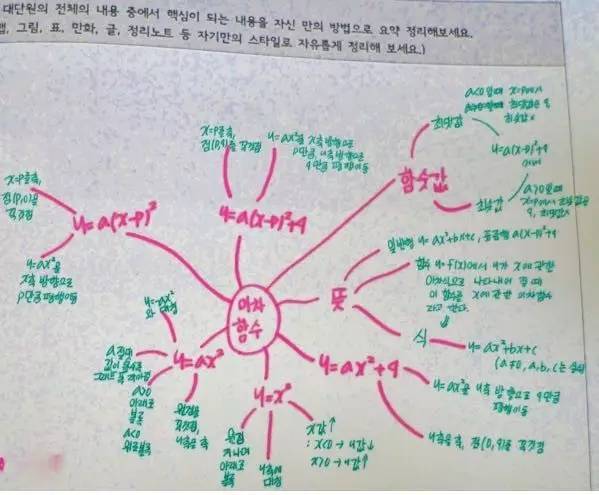 대단원의 전체의 내용 중에서 핵심이 되는 내용을 자신 만의 방법으로 요약 정리해보세요.
맵, 그림, 표, 만화, 글, 정리노트 등 자기만의 스타일로 자유롭게 정리해 보세요.)
이차
함수
y=a(x-p)²
x=p를 축,
점(p,0)을
꼭짓점
y=ax²을
x축 방향으로
p만큼 평행이동
y=a(x-p)²+q
x=p를 축,
점(p,q)를 꼭짓점
y=ax²을 x축 방향으로
p만큼, y축 방향으로
q만큼 평행이동
함숫값
최댓값
a<0일때 x=p에서
최댓값은 q,
최솟값 x
y=a(x-p)²+q
에서
최솟값
a>0일때
x=p에서 최솟값은
q, 최댓값x
뜻
일반형 y=ax²+bx+c, 표준형 a(x-p)²+q
함수 y=f(x)에서 y가 x에 관한
이차식으로 나타내어 질 때
이 함수를 x에 관한 이차함수
라고 한다.
식
y=ax²+bx+c
(a≠0, a,b,c는 상수
y=ax²+q
y=ax²을 y축 방향으로 q만큼
평행이동
y축을 축, 점(0,q)를 꼭짓점
y=x²
원점
지나며
아래로
볼록
y축에
대칭
x값↑
: x<0→y값↓
x>0→y값↑
y=ax²
y=-ax²
와 대칭
a절대
값이 클수록
그래프 폭 좁아짐
a>0
아래로
볼록
a<0
위로볼록
원점을
꼭짓점,
y축을 축